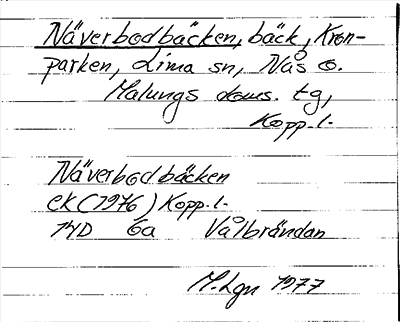 Näverbodbäcken, bäck, Kron-
parken, Lima sn, Nås o.
Malungs doms. tg,
Kopp. l.
Näverbodbäcken
EK (1976) Kopp. l.
14D 6a Vålbrändan
M. Lgn 1977